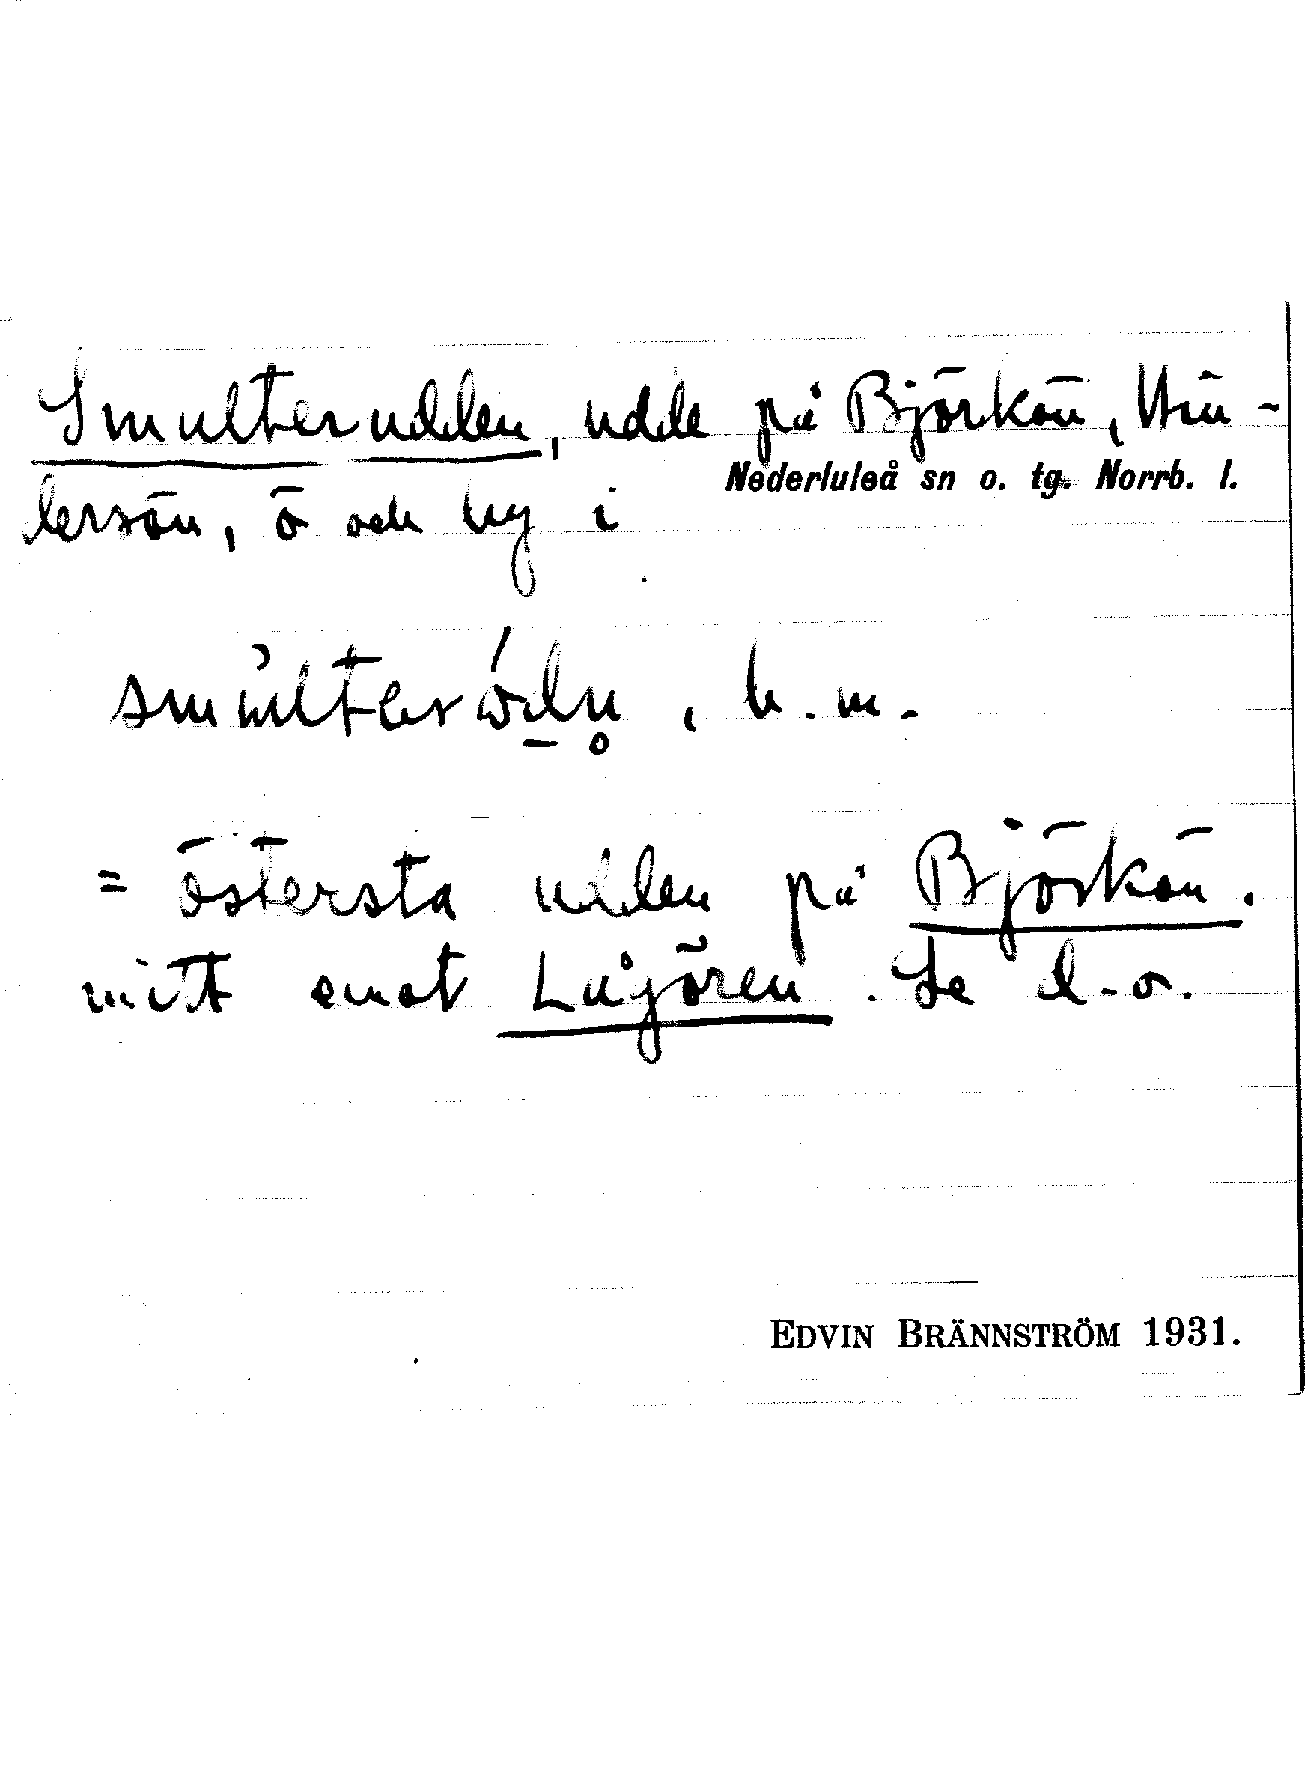 Smulterudden, udde på Björkön, Hin-
Nederluleå sn o. tg. Norrb. l.
lersön, ö och by i
b. m.
= östersta udden på Björkön.
mitt emot Lågören. Se d-o.
EDVIN BRÄNNSTRÖM 1931.